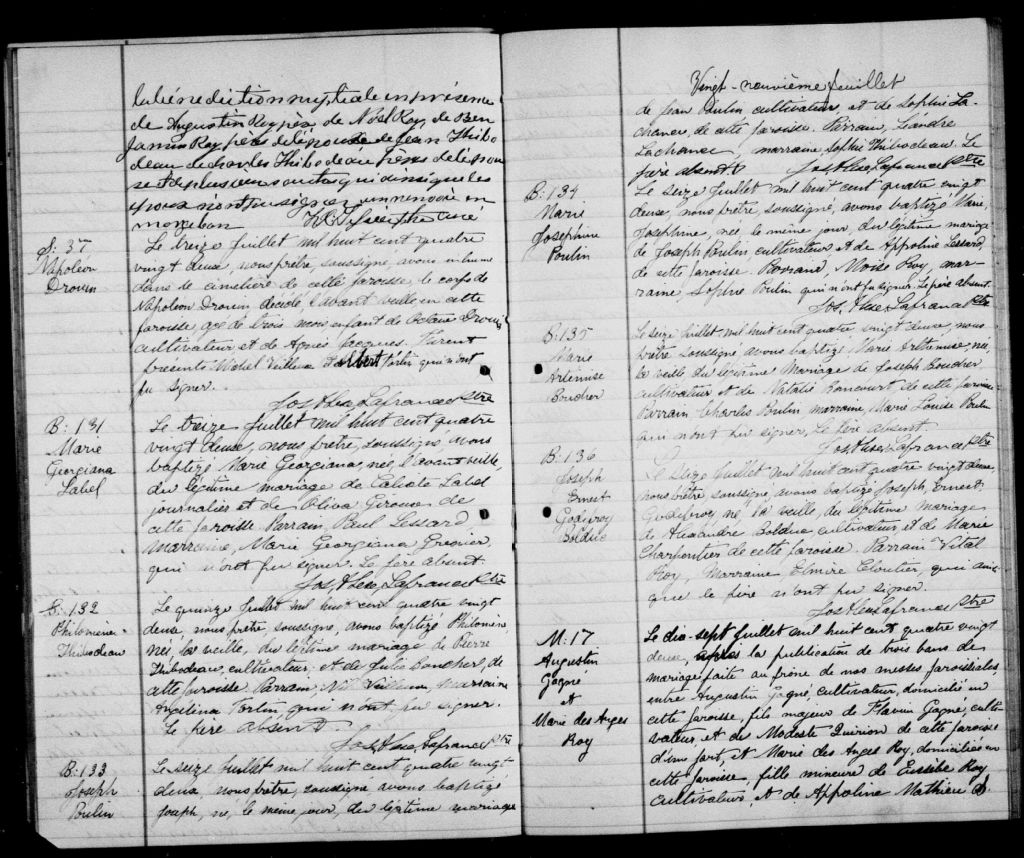 la bénédiction nuptiale en présence
de Augustin Roy père de Noël Roy, de Ben
jamin Roy, frère de l'époux de Jean Thibo
deau de Charles Thibodeau frères de l'épou
se et de plusieurs autres qui ainsi que les
époux n'ont pu signer
S: 37
Napoléon
Drouin
Le treize juillet mil huit cent quatre
vingt deux, nous prêtre, soussigné avons inhumé
dans le cimetière de cette paroisse, le corps de
Napoléon Drouin décédé, l'avant veille en cette
paroisse, agé de trois mois enfant de Octave Drouin
cultivateur et de Agnès Jacques. Furent
présents Michel Veilleux et Albert Fortin qui n'ont
pu signer.
Jos. Alex. Lafrance Ptre
B: 131
Marie
Georgiana
Label
Le treize juillet mil huit cent quatre
vingt deux, nous prêtre, soussigné, avons
baptizé Marie Georgiana, née, l'avant veille,
du légitime mariage de Label
journalier et de Oliva Giroux de
cette paroisse Parrain, Paul Lessard,
marraine, Marie Georgiana Grenier,
qui n'ont pu signer. Le père absent.
Jos. Alex. Lafrance Ptre
B: 132
Philomène
Thibodeau
Le quinze juillet mil huit cent quatre vingt
deux, nous prêtre, soussigné, avons baptizé Philomène,
née, la veille, du légitime mariage de Pierre
Thibodeau, cultivateur, et de Julie Boucher, de
cette paroisse Parrain, marraine
Angelina Fortin qui n'ont pu signer.
Le père absent
Jos. Alex. Lafrance Ptre
B: 133
Joseph
Poulin
Le seize juillet mil huit cent quatre vingt
deux, nous prêtre, soussigné avons baptizé
Joseph, né, le même jour, du légitime mariage
Vingt-neuvième feuillet
de Jean Poulin cultivateur et de Sophie La-
chance, de cette paroisse. Parrain, Léandre
Lachance, marraine, Sophie Thibodeau. Le
père absent. Jos. Alex. Lafrance Ptre
B: 134
Marie
Josephine
Poulin
Le seize juillet mil huit cent quatre vingt
deux, nous prêtre, soussigné, avons baptizé Marie,
Josephine, née le même jour, du légitime mariage
de Joseph Poulin, cultivateur, et de Appoline Lessard,
de cette paroisse. Parrain, Moïse Roy, mar-
raine, Sophie Poulin qui n'ont pu signer. Le père absent.
Jos. Alex. Lafrance Ptre
B: 135
Marie
Artémise
Boucher
Le seize juillet mil huit cent quatre vingt deux, nous
prêtre soussigné, avons baptizé Marie Arthémise, née,
la veille du légitime mariage de Joseph Boucher
cultivateur et de Natalie Rancourt de cette paroisse
Parrain Charles Poulin marraine, Marie Louise Poulin
qui n'ont pu signer. Le père absent
Jos. Alex. Lafrance Ptre
B: 136
Joseph
Ernest
Godefroy
Bolduc
Le seize juillet mil huit cent quatre vingt deux,
nous prêtre, soussigné, avons baptizé Joseph, Ernest,
Godefroy né la veille, du légitime mariage
de Alexandre Bolduc, cultivateur et de Marie
Charpentier de cette paroisse. Parrain Vital
Roy, Marraine Elmire Cloutier, qui ainsi
que le père n'ont pu signer.
Jos. Alex. Lafrance Ptre
M: 17
Augustin
Gagné
et
Marie des Anges
Roy
Le dix-sept juillet mil huit cent quatre vingt
deux, après la publication de trois bans de
mariage faite au prône de nos messes paroissiales,
entre Augustin Gagné, cultivateur, domicilié en
cette paroisse, fils majeur de Flavien Gagné, culti-
vateur, et de Modeste Quirion de cette paroisse
d'une part, et Marie des Anges Roy, domiciliée en
cette paroisse, fille mineure de Eusèbe Roy
cultivateur, et de Appoline Mathieu